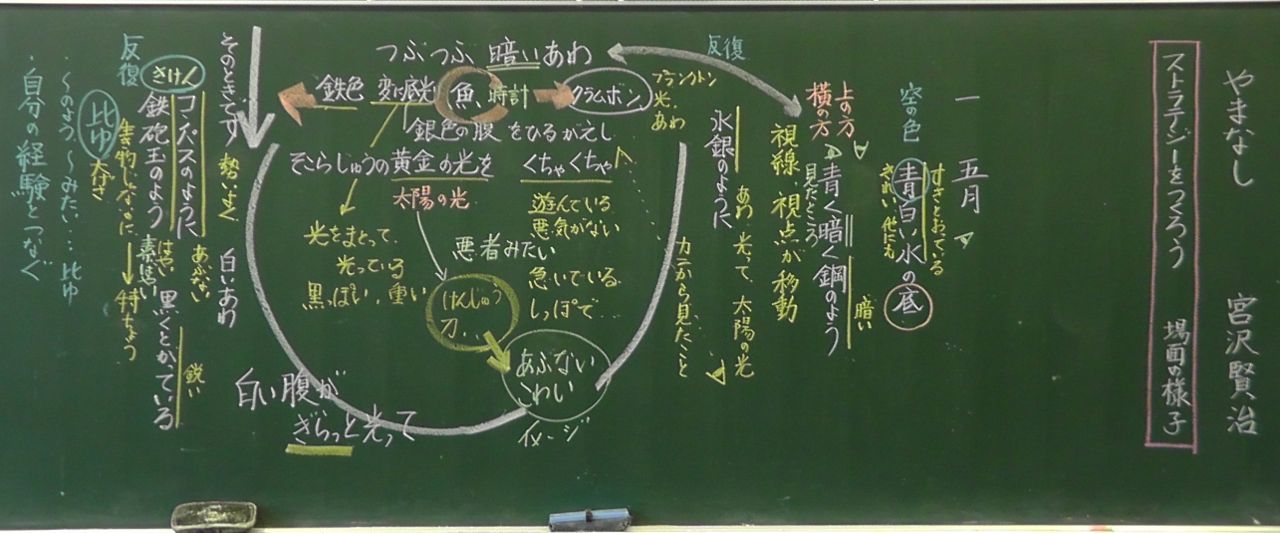 やまなし　宮沢賢治
ストラテジーをつくろう　場面の様子
一　五月
すきとおっている
空の色
青白い水の底
きれい　他にも
暗い
上の方
横の方
青く暗く鋼のよう
見たところ
視線、視点が移動
反復
水銀のように
あわ　光って、太陽の光
カニから見たこと
つぶつぶ暗いあわ
プランクトン
光、
あわ
クラムボン
魚、時計
変に底光り
鉄色
銀色の腹をひるがえし
そこらじゅうの黄金の光をくちゃくちゃ
太陽の光
遊んでいる
悪気がない
悪者みたい
急いでいる
しっぽで
光をまとって、
光っている
黒っぽい、重い
けんじゅう
刀、
あぶない
こわい
イメージ
白い腹が
ぎらっと光って
そのときです
勢いよく
白いあわ
きけん
コンパスのように
あぶない
黒くとがっている
鋭い
反復
鉄砲玉のよう
はやい
素早い
比ゆ
生物じゃないのに→特ちょう
大きさ
・〜のよう、〜みたい…比ゆ
・自分の経験とつなぐ